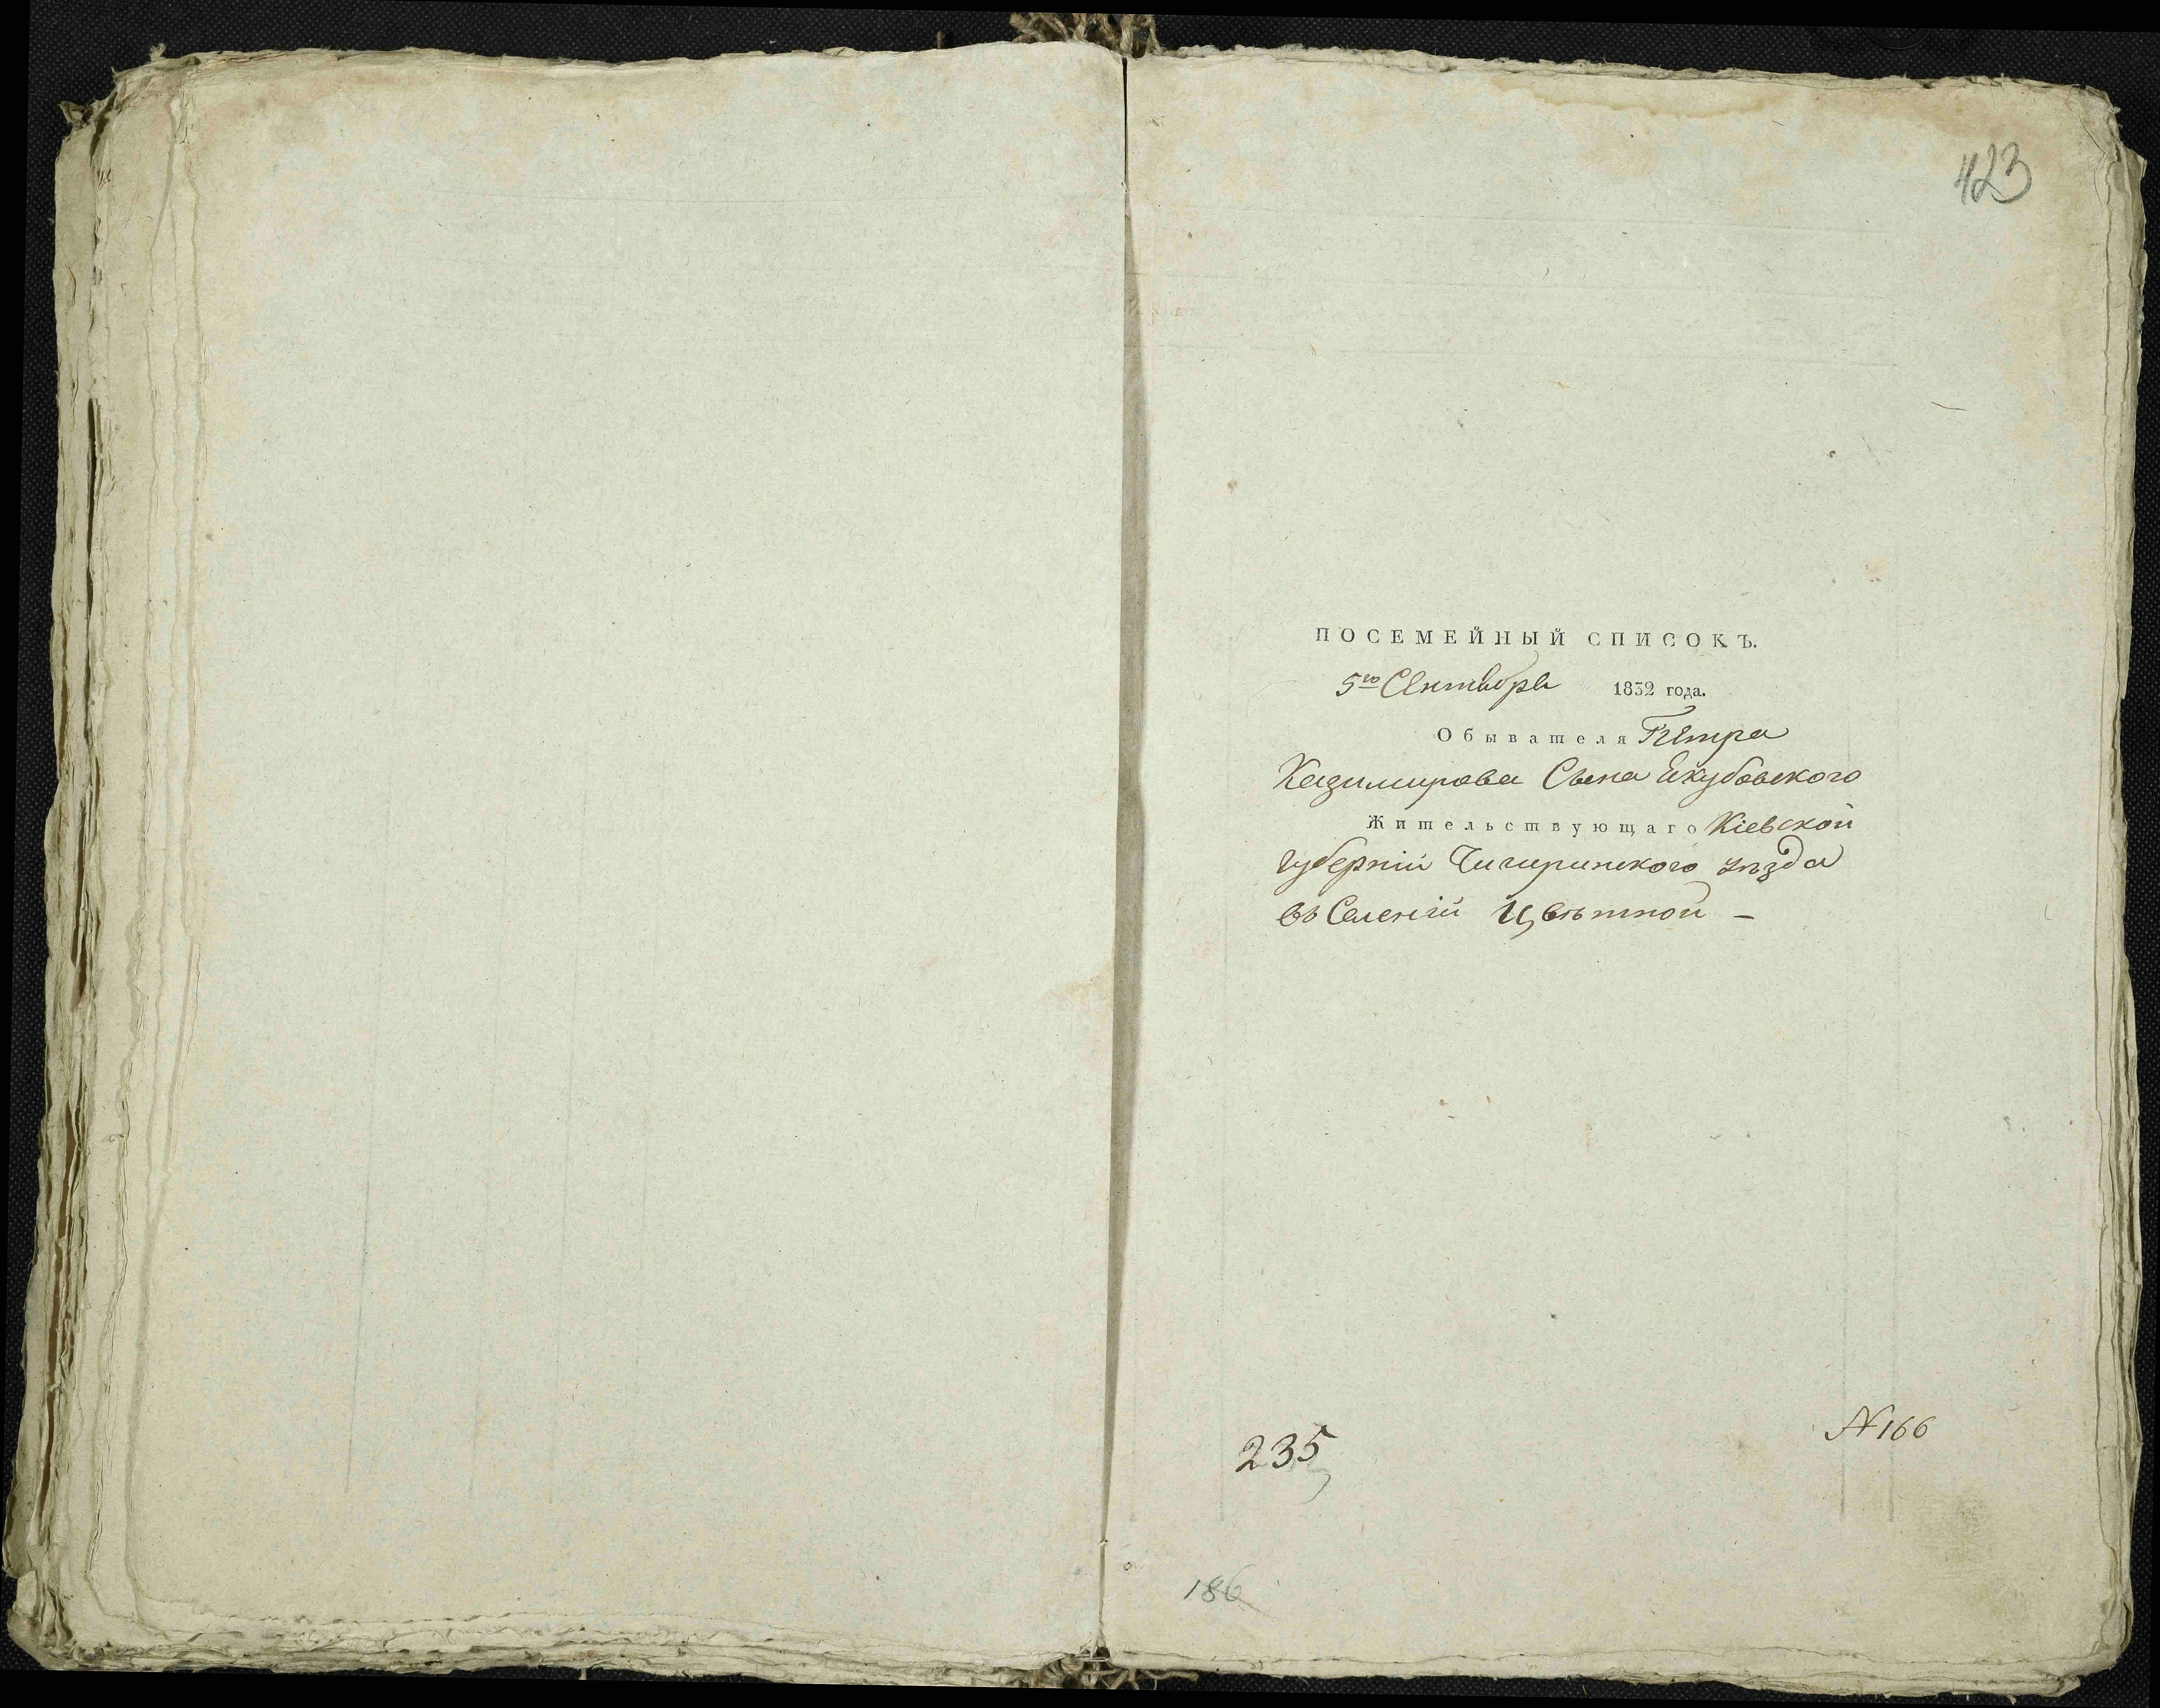 423
ПОСЕМЕЙНЫЙ СПИСОКЪ.
5го Сентября 1832 года.
Обывателя Петра
Казимирова Сына Екубовского
Жительствующаго Кіевской
Губерніи Чигиринского уѣзда
въ Селеніи Цвѣтной –
235
N 166
186